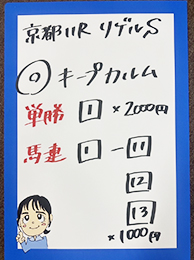 京都11R リゲルS
◎ キープカルム
単勝 1 ×2000円
馬連 1 - 11
12
13
×1000円